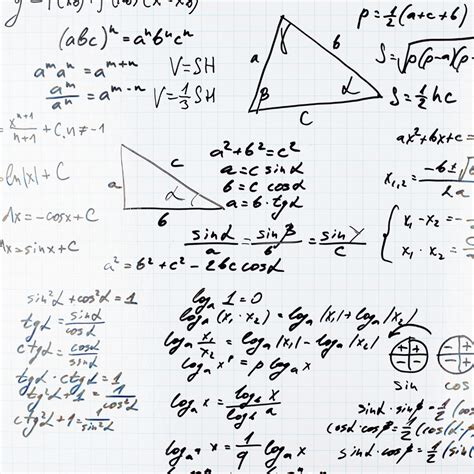 (abc)ⁿ = aⁿbⁿcⁿ
p = ½(a+c+b)
aᵐaⁿ = aᵐ⁺ⁿ
V = SH
a
b
γ
aᵐ/aⁿ = aᵐ⁻ⁿ
V = ⅓SH
α
β
c
S = ½hc
xⁿ⁺¹/(n+1) + C, n ≠ -1
ax²+bx+c =
ln|x| + C
a
c
α
b
a²+b²=c²
a = c sinα
b = c cosα
a = b·tgα
x₁,₂ =
dx = -cosx + C
dx = sinx + C
sinα/a = sinβ/b = sinγ/c
x₁ · x₂ =
a² = b² + c² - 2bc cosα
sin²α + cos²α = 1
tgα = sinα/cosα
ctgα = cosα/sinα
tgα · ctgα = 1
tg²α + 1 = 1/cos²α
ctg²α + 1 = 1/sin²α
logₐ 1 = 0
logₐ (x₁ · x₂) = logₐ |x₁| + logₐ |x₂|
logₐ x₁/x₂ = logₐ |x₁| - logₐ |x₂|
logₐ xᵖ = p logₐ x
logₐ x = log_b x / log_b a
x = 1/q logₐ x
+ +
- -
sin
cos
sinα · sinβ = ½ (cos
cosα · cosβ = ½ (cos(α-β
sinα · cosβ = ½ (sin